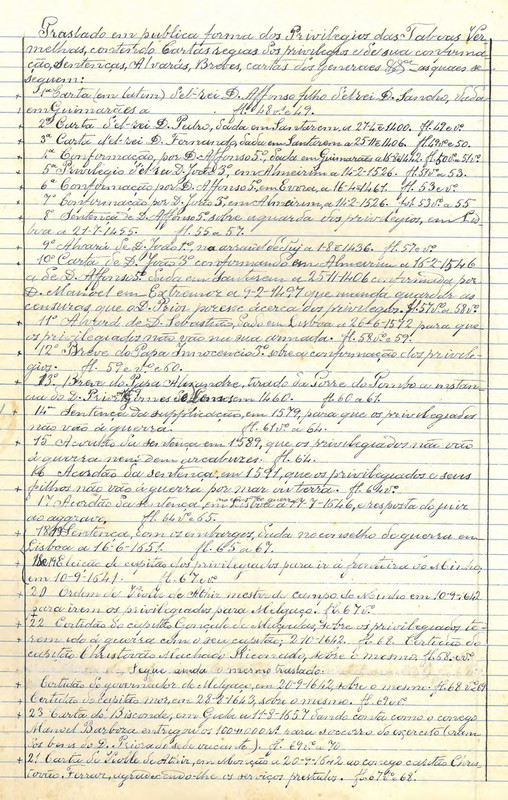 Traslado em publica forma dos Privilegios das Taboas Ver-
melhas, contendo Cartas regias dos privilegios e de sua confirma-
ção, Sentenças, Alvarás, Breves, cartas dos generaes as quaes se
seguem:
1ª Carta (em latim) d'el-rei D. Affonso filho d'el rei D. Sancho, dada
em Guimarães a fl. 48 vº e 49.
2ª Carta d'el-rei D. Pedro, dada em Santarem a 27-4-1400. fl. 49 e vº
3ª Carta d'el-rei D. Fernando, dada em Santarem a 25-11-1406. fl. 49 vº e 50.
4ª Confirmação, por D. Affonso 5º, dada em Guimarães a
5º Privilegio d'el-rei D. João 3º, em Almeirim, a 14-2-1526. fl. 51 vº a 53.
6ª Confirmação por D. Affonso 5º, em Evora, a 16-4-1461. fl. 53 e vº
7ª Confirmação por D. João 3º, em Almeirim, a 14-2-1526. fl. 53 vº a 55
8ª Sentença de D. Affonso 5º sobre a guarda dos privilegios, em Lis-
boa a 21-7-1455. fl. 55 a 57.
9º Alvará de D. João 1º, no arraial de Tuy a 1-8-1436. fl. 57 e vº
10ª Carta de D. João 3º confirmando em Almeirim a 15-2-1546
a de D. Affonso 5º dada em Santarem a 25-11-1406 confirmada por
D. Manoel em Extremoz a 9-2-1497 que manda guardar as
censuras que o D. Prior poz acerca dos privilegios. fl. 57 vº a 58 vº
11º Alvará de D. Sebastião, dado em Lisboa a 26-6-1572 para que
os privilegiados não vão na sua armada. fl. 58 vº e 59.
12º Breve do Papa Innocencio sobre a confirmação dos privile-
gios. fl. 59 e vº e 60.
13º Breve do Papa Alexandre, tirado da Torre do Tombo a instan-
cia do D. Prior em 1460. fl. 60 a 61.
14ª Sentença da supplicação, em 1579, para que os privilegiados
não vão á guerra. fl. 61 vº a 64.
15 Acordão da sentença em 1589, que os privilegiados não vão
á guerra nem dem arcabuzes. fl. 64.
16 Acordão da sentença, em 1591, que os privilegiados e seus
filhos não vão á guerra por mar ou terra. fl. 64 vº
17 Acordão da sentença, em Lisboa a e resposta do juiz
ao aggravo. fl. 64 vº e 65.
18 Sentença, com os embargos, dada no conselho de guerra em
Lisboa a 16-6-1651. fl. 65 a 67.
19 Eleição de capitão dos privilegiados para ir á fronteira do Minho,
em 10-9-1641. fl. 67 vº
20 Ordem de mestre de campo do Minho em 10-9-1642
para irem os privilegiados para Melgaço. fl. 67 vº
22 Certidão do capitão Gonçalo de sobre os privilegiados te-
rem ido á guerra com o seu capitão; 2-10-1642. fl. 68. Certidão do
capitão Christovão Machado sobre o mesmo. fl. 68 e vº
Segue ainda o mesmo traslado:
Certidão do governador de Melgaço, em 20-9-1642, sobre o mesmo. fl. 68 vº e 69
Certidão do capitão mor, em 28-9-1642, sobre o mesmo. fl. 69 e vº
23 Carta do Bisconde, em a 11-8-1657 dando conta como o conego
Manoel Barbosa entregou os 100$000 rs para soccorro do exercito
os bens do D. Priorado (sede vacante). fl. 69 vº a 70
21 Carta de em Monção a 20-9-1642 ao conego capitão Chris-
tovão Ferraz, agradecendo-lhe os serviços prestados.